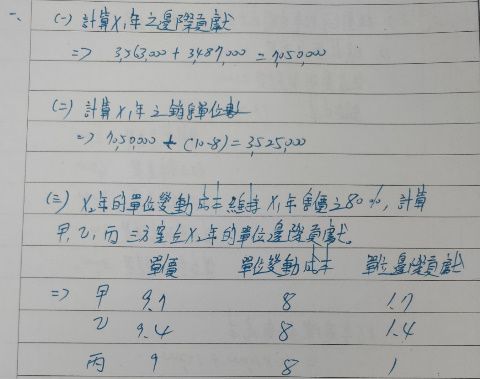 一、
(一) 計算X1年之邊際貢獻
=> 3,563,000 + 3,487,000 = 7,050,000
(二) 計算X1年之銷售單位數
=> 7,050,000 ÷ (10-8) = 3,525,000
(三) X2年的單位變動成本維持X1年單價之80%, 計算
甲, 乙, 丙 三方案在X2年的單位邊際貢獻
單價 單位變動成本 單位邊際貢獻
=> 甲 9.7 8 1.7
乙 9.4 8 1.4
丙 9 8 1